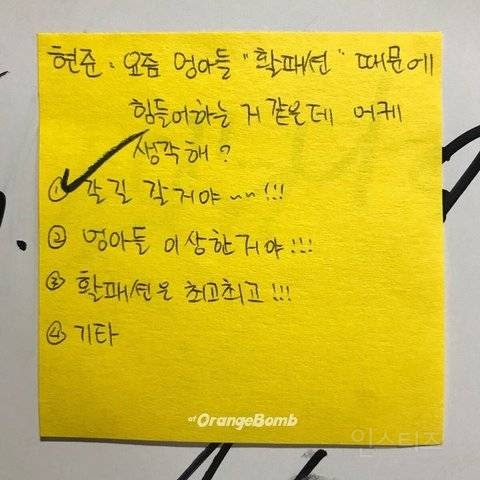 현준 : 요즘 엉아들 "활패션" 때문에
힘들어하는 거 같은데 어케
생각해 ?
① 갈길 갈거야 ~~!!!
② 엉아들 이상한거야 !!!
③ 활패션은 최고최고 !!!
④ 기타
of OrangeBomb
인스티즈